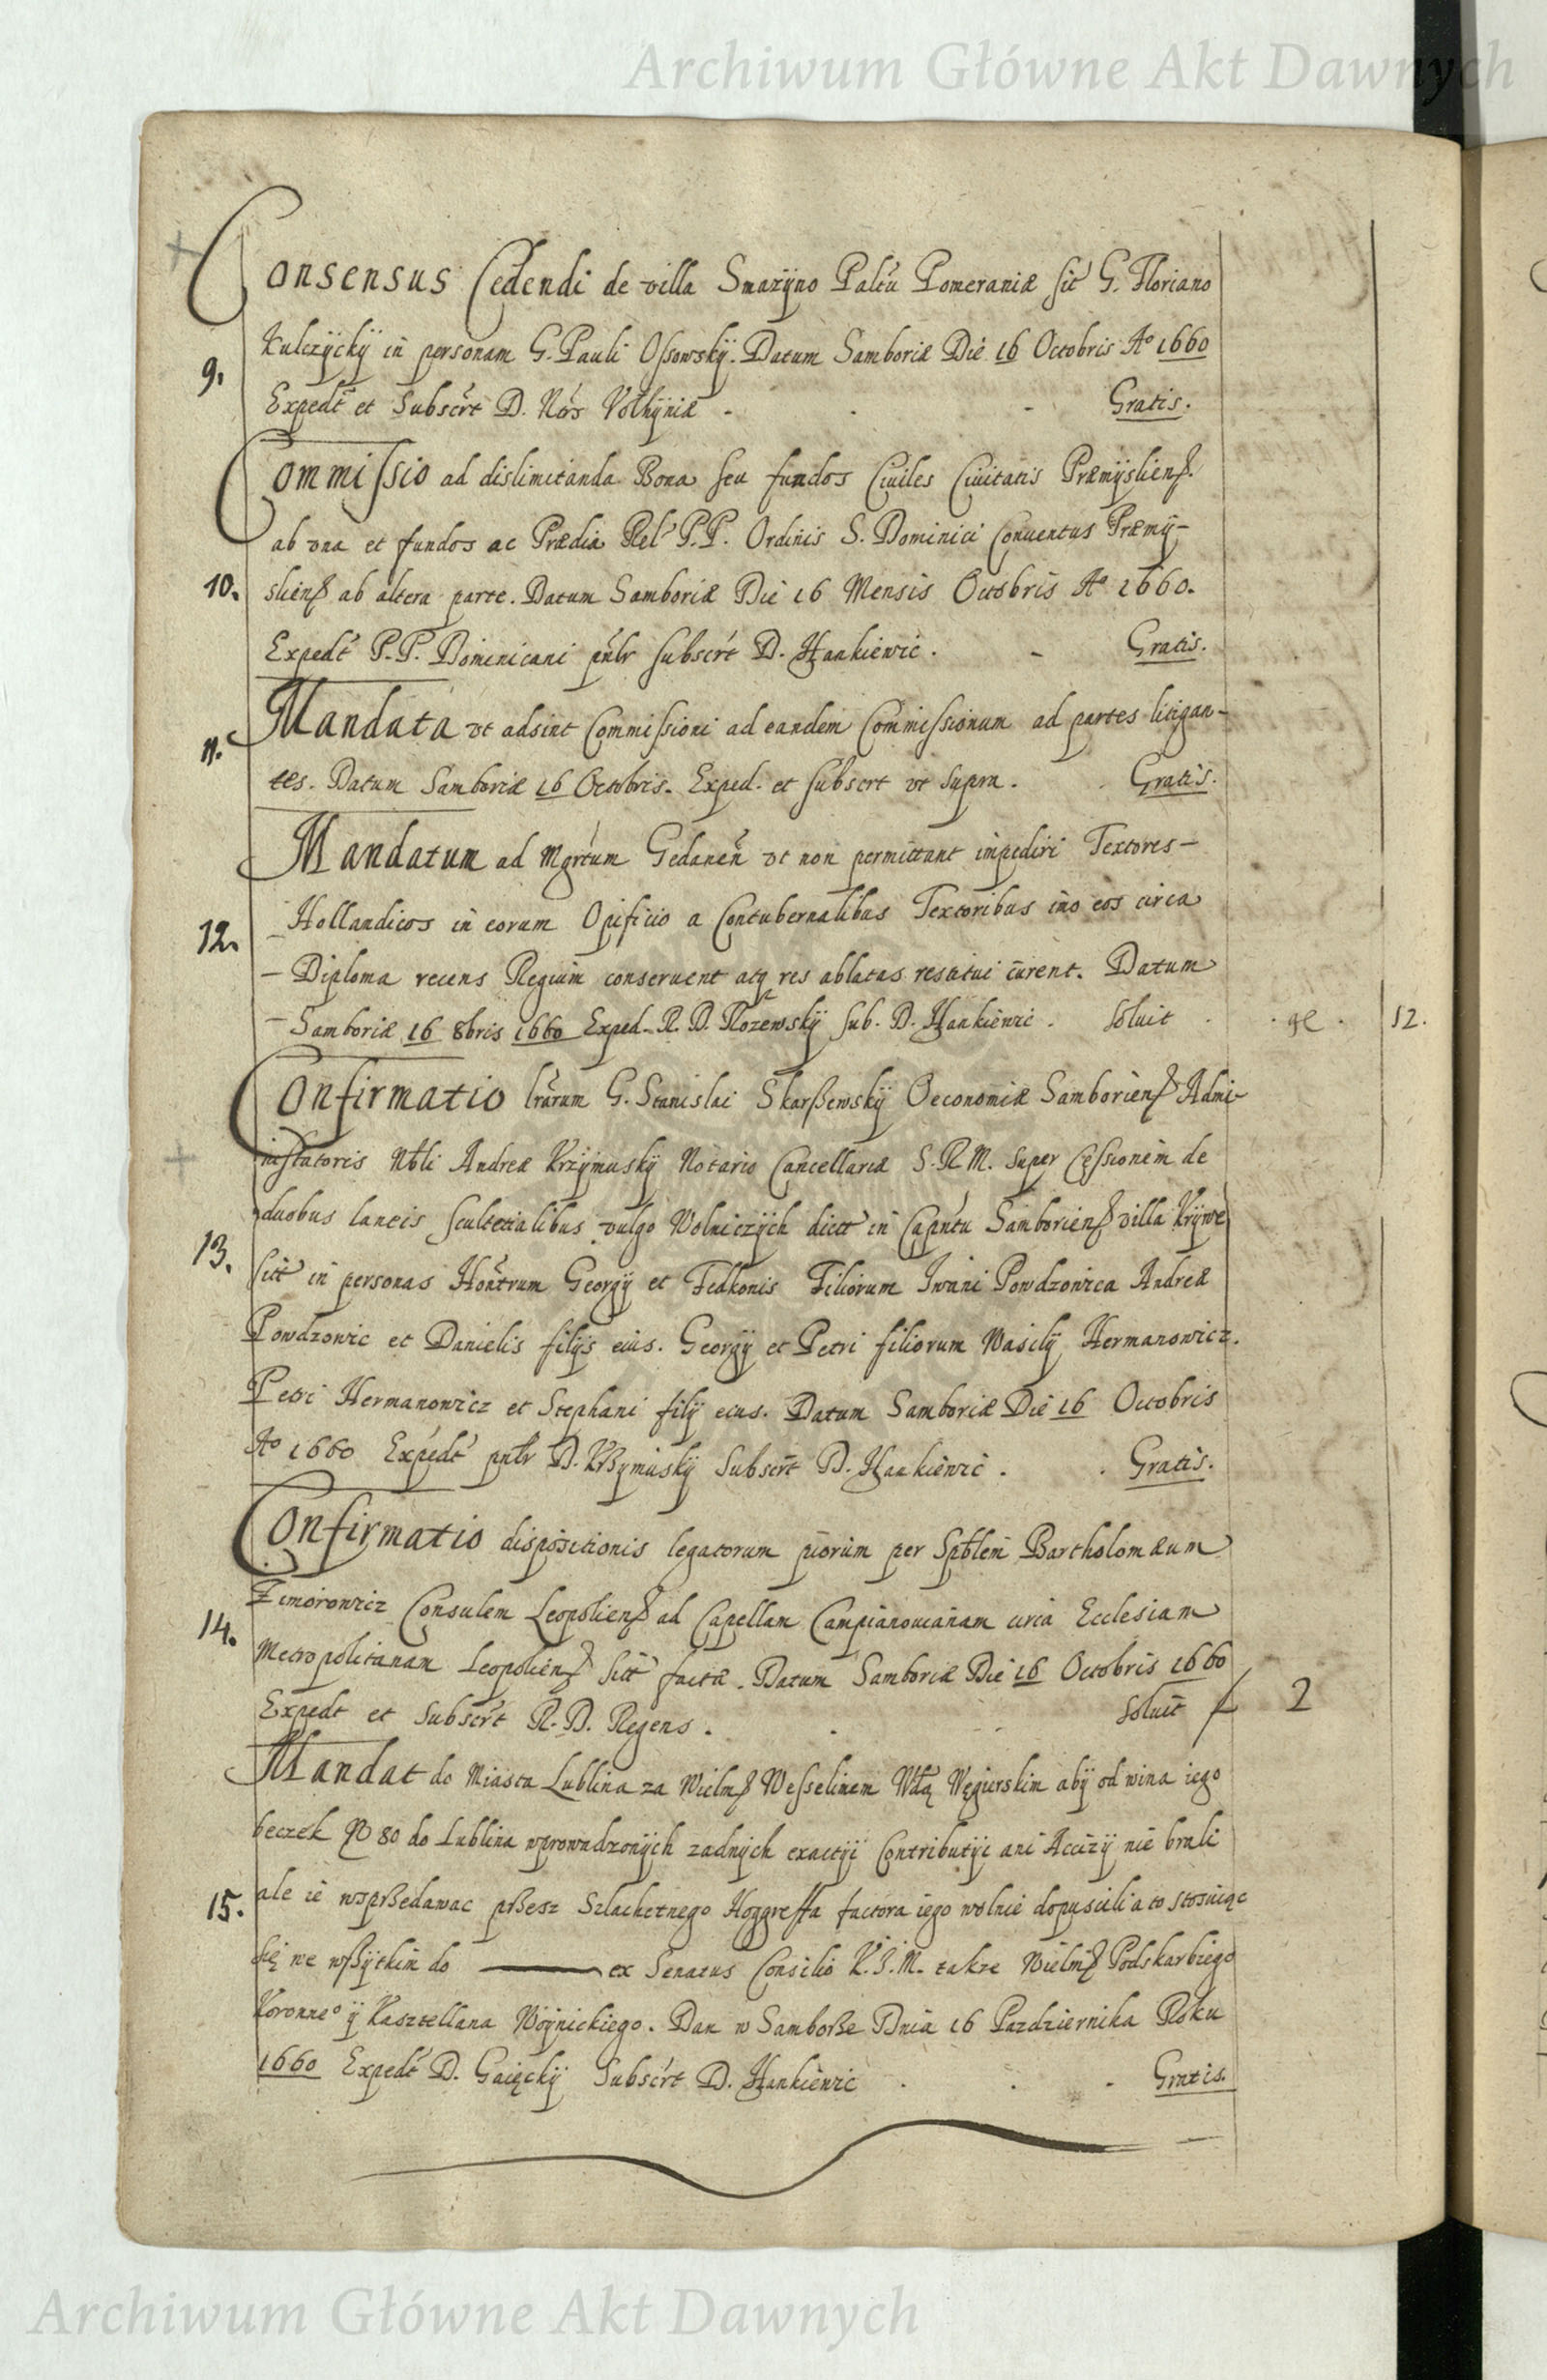 Archiwum Główne Akt Dawnych
Consensus Cedendi de villa Smazyno Paltu Pomeraniæ sit G. Floriano
9. Kulczÿckÿ in personam G. Pauli Ossowskÿ. Datum Samboriæ Die 16 Octobris Aº 1660
Expedt et Subscrt D. Nors Volhÿniæ - . - Gratis.
Commissio ad dislimitanda Bona seu fundos Ciuiles Ciuitatis Præmÿsliens.
ab vna et fundos ac Prædia Rel P.P. Ordinis S. Dominici Conuentus Præmÿ-
10. sliens ab altera parte. Datum Samboriæ Die 16 Mensis Octobris Aº 1660.
Expedt P.P. Dominicani pntr subscrt D. Hankiewic. - Gratis.
Mandata vt adsint Commissioni ad eandem Commissionum ad partes litigan-
11. tes. Datum Samboriæ 16 Octobris. Exped. et subscrt vt supra. . Gratis.
Mandatum ad Mgrtum Gedanen vt non permittant impediri Textores -
12. Hollandicos in eorum Opificio a Contubernalibus Textoribus imo eos circa
- Diploma recens Regium conseruent atq res ablatas restitui curent. Datum
- Samboriæ 16 8bris 1660 Exped. R. D. Rozewskÿ sub. D. Hankiewic. Soluit . . ge . 12.
Confirmatio lrarum G. Stanislai Skarßewskÿ Oeconomiæ Samboriens Admi-
nistratoris Nbli Andreæ Krzÿmuskÿ Notario Cancellariæ S.R.M. super Cessionem de
duobus laneis scultetialibus vulgo Wolniczÿch dictt in Capntu Samboriens villa Krÿwe
13. sitt in personas Hontrum Georgÿ et Fedkonis Filiorum Iwani Powdzowica Andreæ
Powdzowic et Danielis filÿs eius. Georgÿ et Petri filiorum Wasilÿ Hermanowicz.
Petri Hermanowicz et Stephani filÿ eius. Datum Samboriæ Die 16 Octobris
Aº 1660 Expedt pntr D. Krßymuskÿ Subscrt D. Hankiewic. . Gratis.
Confirmatio dispositionis legatorum piorum per Sptblem Bartholomæum
Zimorowicz Consulem Leopoliens ad Capellam Campianouianam circa Ecclesiam
14. Metropolitanam Leopoliens sitt factæ. Datum Samboriæ Die 16 Octobris 1660
Expedt et Subscrt R. D. Regens. . - Soluit f 2
Mandat do Miasta Lublina za Wielms Wesselinem Wdą Węgierskim abÿ od wina iego
beczek No 80 do Lublina wprowadzonÿch zadnÿch exactÿi Contributÿi ani Accizÿ nie brali
15. ale ie wÿsprßedawac prßesz Szlachetnego Hoggreffa factora iego wolnie dopuscili a to stosuiąc
się we wßÿtkim do ——— ex Senatus Consilio K.J.M. takze Wielms Podskarbiego
Koronneº ÿ Kasztellana Woÿnickiego. Dan w Samborße Dnia 16 Pazdziernika Roku
1660 Expedt D. Gaięckÿ Subscrt D. Hankiewic . . - Gratis.
Archiwum Główne Akt Dawnych